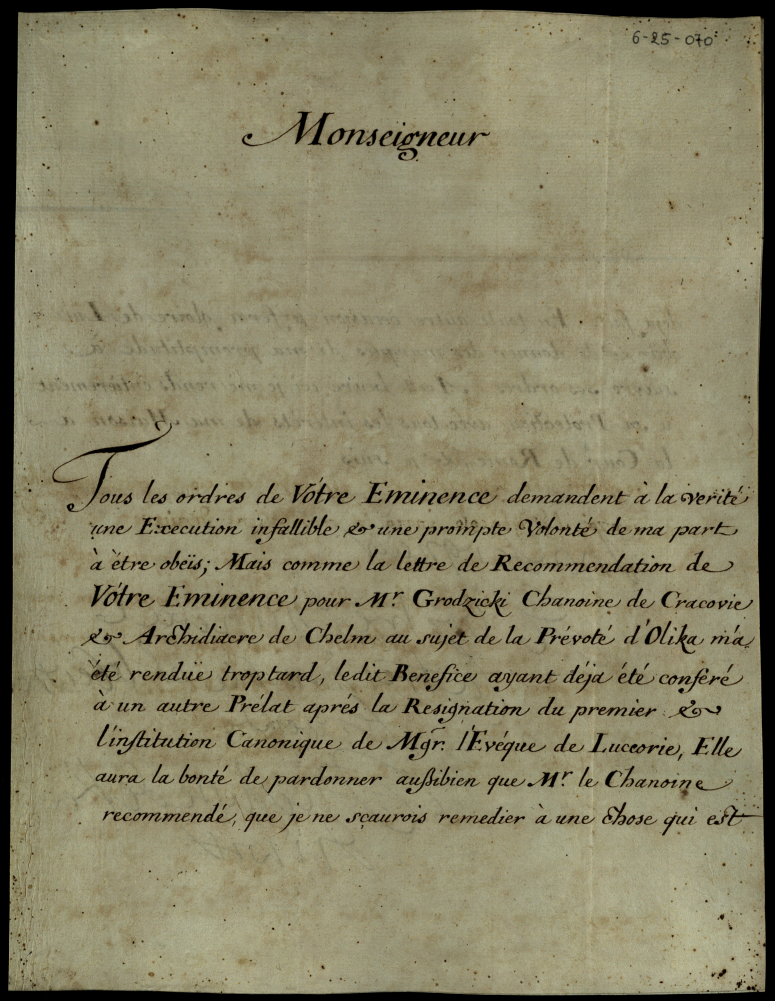 6-25-070
Monseigneur
Tous les ordres de Vôtre Eminence demandent à la verité
une Execution infallible & une prompte Volonté de ma part
à être obeïs; Mais comme la lettre de Recommendation de
Vôtre Eminence pour Mr. Grodzicki Chanoine de Cracovie
& Archidiacre de Chelm au sujet de la Prévoté d'Olika m'a
été rendüe trop tard, ledit Benefice ayant déja été conféré
à un autre Prélat aprés la Resignation du premier &
l'institution Canonique de Mgr. l'Evéque de Luceorie, Elle
aura la bonté de pardonner außibien que Mr. le Chanoine
recommendé, que je ne sçaurois remedier à une chose qui est